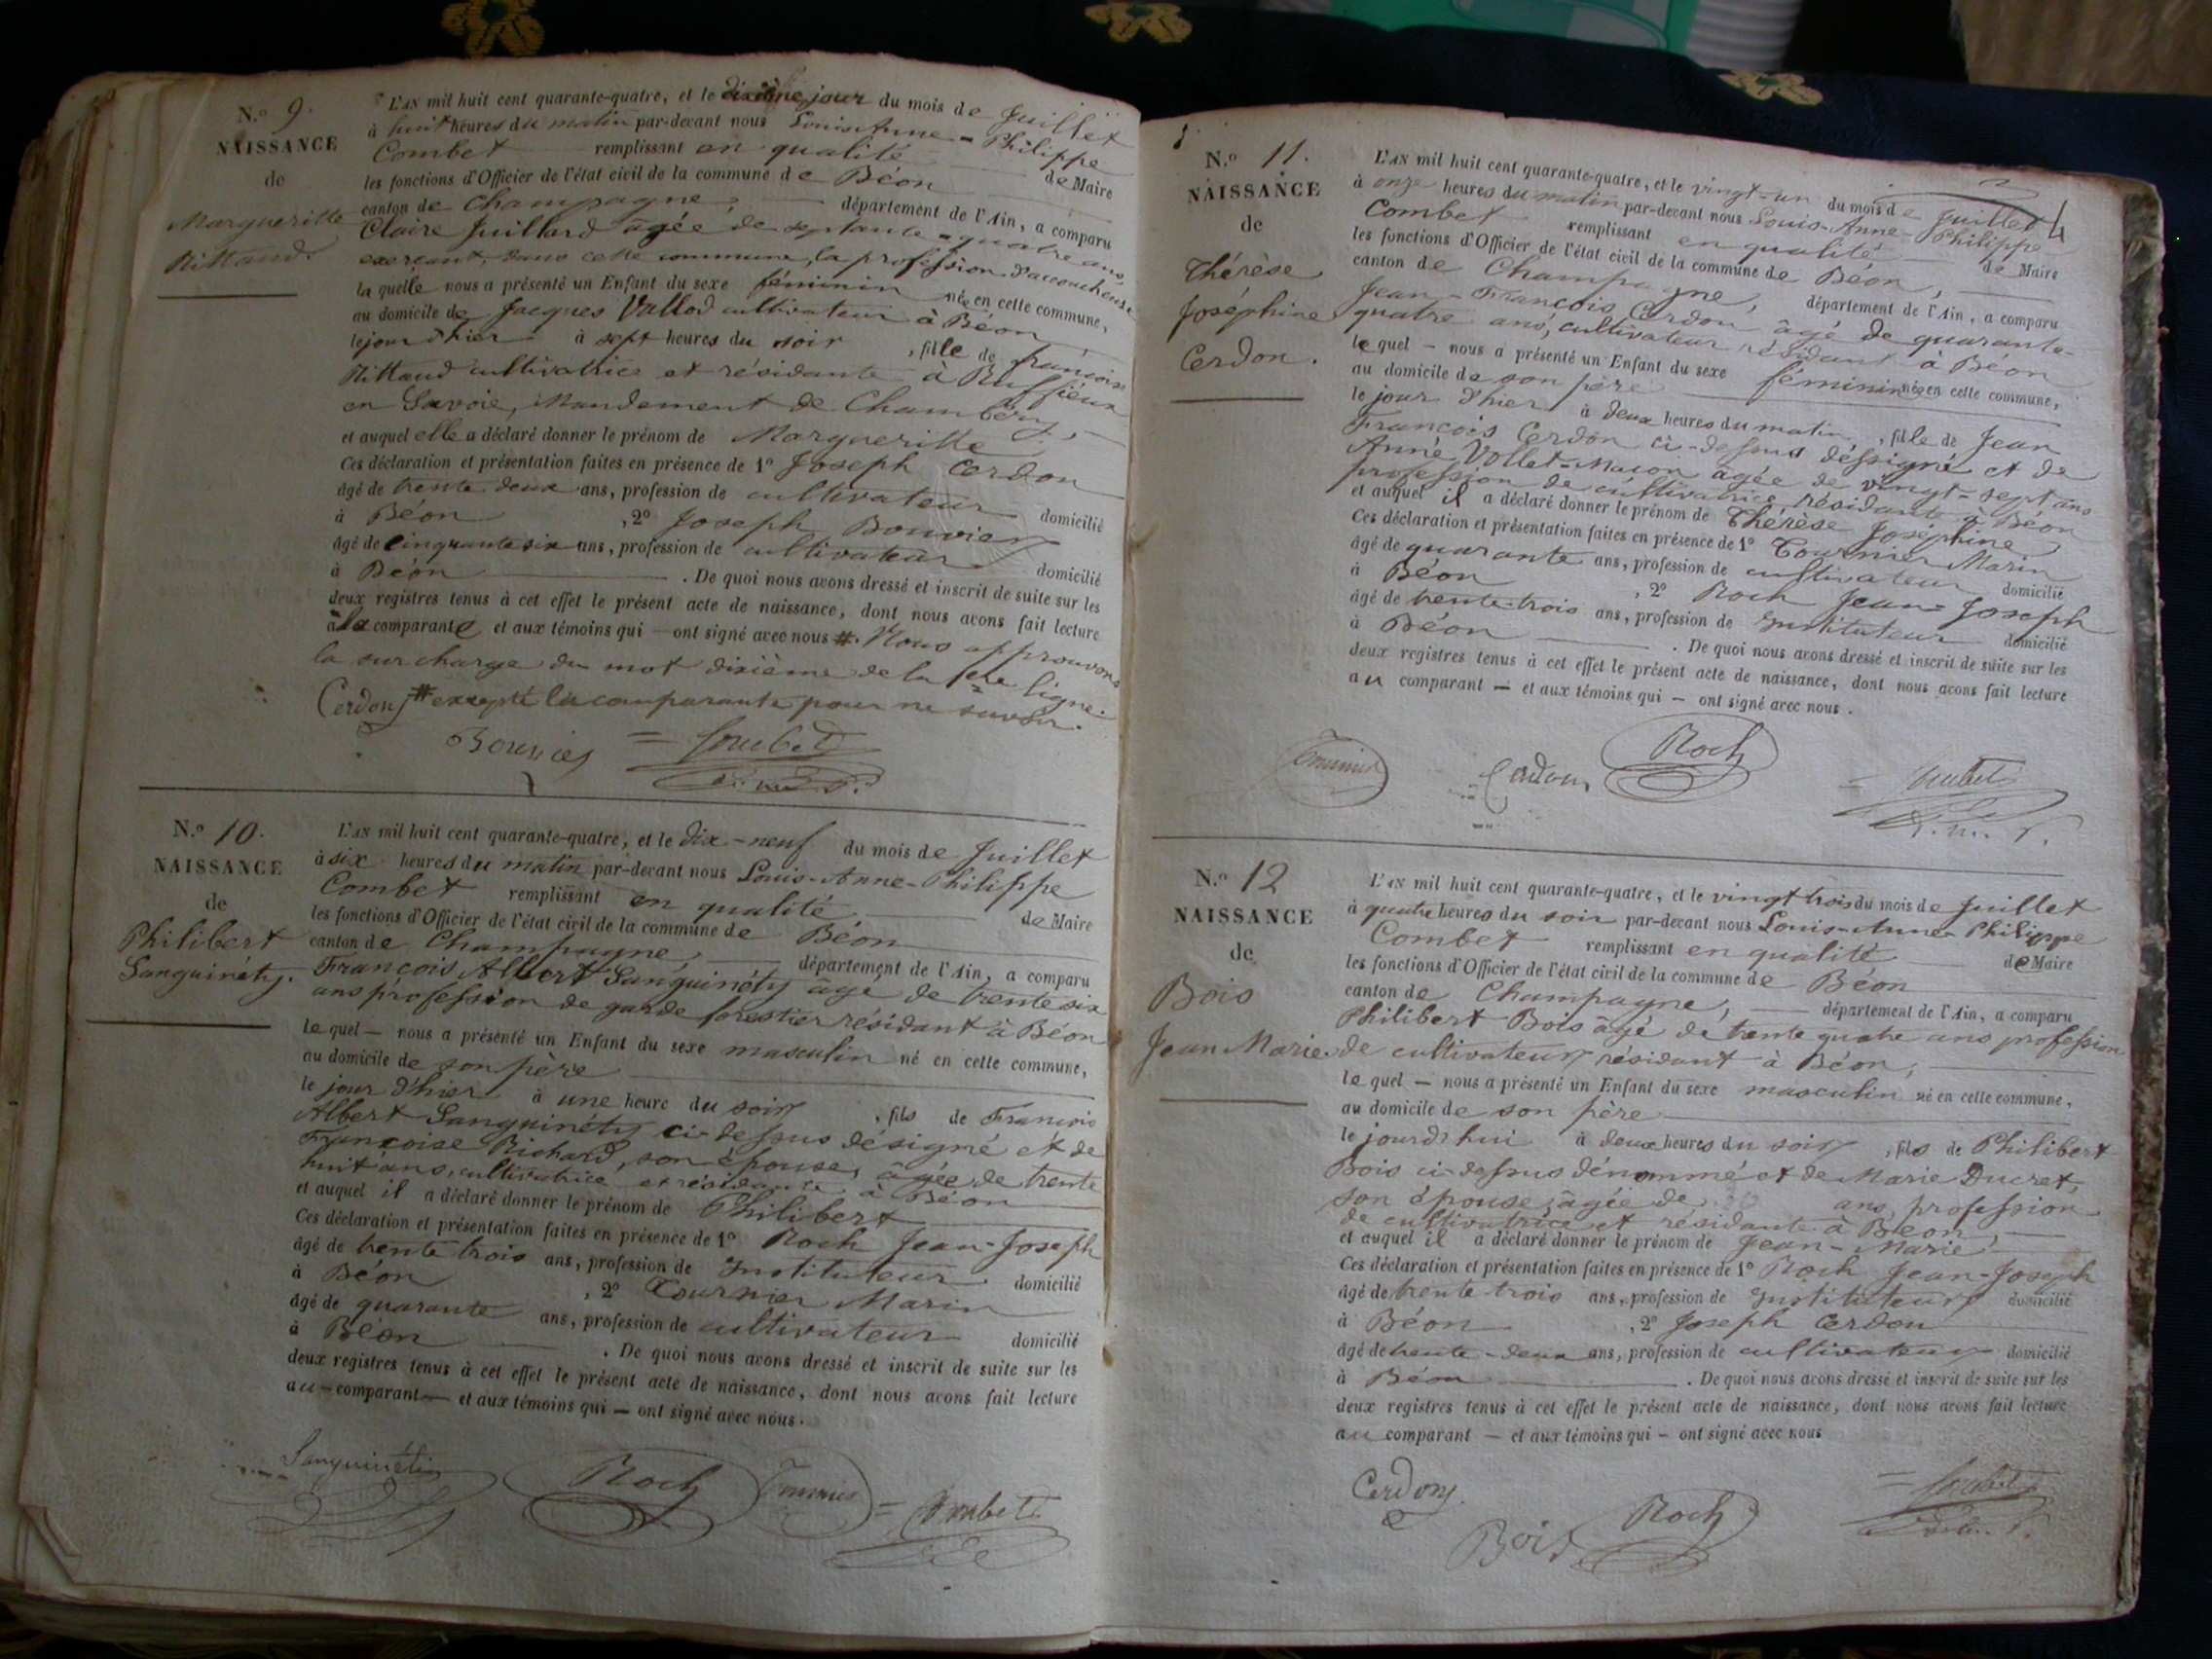 N.º 9.
NAISSANCE
de
Margueritte
Rittaud.
L'AN mil huit cent quarante-quatre, et le dixième jour du mois de Juillet
à huit heures du matin par-devant nous Louis-Anne-Philippe
Combet remplissant en qualité de Maire
les fonctions d'Officier de l'état civil de la commune de Béon
canton de Champagne, département de l'Ain, a comparu
Claire Juillard âgée de septante-quatre ans,
exerçant, dans cette commune, la profession d'accoucheuse
la quelle nous a présenté un Enfant du sexe féminin née en cette commune,
au domicile de Jacques Vallod cultivateur à Béon
le jour d'hier à sept heures du soir, fille de françoise
Rittaud cultivatrice et résidante à Ruffieux
en Savoie, Mandement de Chambéry,
et auquel elle a déclaré donner le prénom de Margueritte
Ces déclaration et présentation faites en présence de 1º Joseph Cerdon
âgé de trente deux ans, profession de cultivateur domicilié
à Béon, 2º Joseph Bouvier
âgé de cinquante six ans, profession de cultivateur domicilié
à Béon. De quoi nous avons dressé et inscrit de suite sur les
deux registres tenus à cet effet le présent acte de naissance, dont nous avons fait lecture
à la comparante et aux témoins qui — ont signé avec nous #. Nous approuvons
la surcharge du mot dixième de la 1ere ligne.
Cerdon # excepté la comparante pour ne savoir.
Bouvier Combet
N.º 10.
NAISSANCE
de
Philibert
Sanguinéty.
L'AN mil huit cent quarante-quatre, et le dix-neuf du mois de Juillet
à six heures du matin par-devant nous Louis-Anne-Philippe
Combet remplissant en qualité de Maire
les fonctions d'Officier de l'état civil de la commune de Béon
canton de Champagne, département de l'Ain, a comparu
François Albert Sanguinéty âgé de trente six
ans profession de garde forestier résidant à Béon
le quel — nous a présenté un Enfant du sexe masculin né en cette commune,
au domicile de son père
le jour d'hier à une heure du soir, fils de François
Albert Sanguinéty ci-dessus désigné et de
Françoise Richard, son épouse, âgée de trente
huit ans, cultivatrice et résidante à Béon
et auquel il a déclaré donner le prénom de Philibert
Ces déclaration et présentation faites en présence de 1º Roch Jean-Joseph
âgé de trente trois ans, profession de Instituteur domicilié
à Béon, 2º Tournier Marin
âgé de quarante ans, profession de cultivateur domicilié
à Béon. De quoi nous avons dressé et inscrit de suite sur les
deux registres tenus à cet effet le présent acte de naissance, dont nous avons fait lecture
au — comparant — et aux témoins qui — ont signé avec nous.
Sanguinéty Roch Tournier Combet
N.º 11.
NAISSANCE
de
Thérèse
Joséphine
Cerdon.
L'AN mil huit cent quarante-quatre, et le vingt-un du mois de Juillet
à onze heures du matin par-devant nous Louis-Anne-Philippe
Combet remplissant en qualité de Maire
les fonctions d'Officier de l'état civil de la commune de Béon,
canton de Champagne, département de l'Ain, a comparu
Jean-François Cerdon âgé de quarante-
quatre ans, cultivateur résidant à Béon
le quel — nous a présenté un Enfant du sexe féminin née en cette commune,
au domicile de son père
le jour d'hier à deux heures du matin, fille de Jean
François Cerdon ci-dessus désigné et de
Anne Vollet-Macon âgée de vingt-sept ans
profession de cultivatrice résidante à Béon
et auquel il a déclaré donner le prénom de Thérèse Joséphine
Ces déclaration et présentation faites en présence de 1º Tournier Marin
âgé de quarante ans, profession de cultivateur domicilié
à Béon, 2º Roch Jean-Joseph
âgé de trente-trois ans, profession de Instituteur domicilié
à Béon. De quoi nous avons dressé et inscrit de suite sur les
deux registres tenus à cet effet le présent acte de naissance, dont nous avons fait lecture
au comparant — et aux témoins qui — ont signé avec nous.
Tournier Cerdon Roch Combet
N.º 12
NAISSANCE
de
Bois
Jean Marie
L'AN mil huit cent quarante-quatre, et le vingt trois du mois de Juillet
à quatre heures du soir par-devant nous Louis-Anne Philippe
Combet remplissant en qualité de Maire
les fonctions d'Officier de l'état civil de la commune de Béon
canton de Champagne, département de l'Ain, a comparu
Philibert Bois âgé de trente quatre ans profession
de cultivateur résidant à Béon,
le quel — nous a présenté un Enfant du sexe masculin né en cette commune,
au domicile de son père
le jourd'hui à deux heures du soir, fils de Philibert
Bois ci-dessus dénommé et de Marie Ducret,
son épouse, âgée de ans, profession
de cultivatrice et résidante à Béon,
et auquel il a déclaré donner le prénom de Jean-Marie
Ces déclaration et présentation faites en présence de 1º Roch Jean-Joseph
âgé de trente trois ans, profession de Instituteur domicilié
à Béon, 2º Joseph Cerdon
âgé de trente-deux ans, profession de cultivateur domicilié
à Béon. De quoi nous avons dressé et inscrit de suite sur les
deux registres tenus à cet effet le présent acte de naissance, dont nous avons fait lecture
au comparant — et aux témoins qui — ont signé avec nous
Cerdon Bois Roch Combet